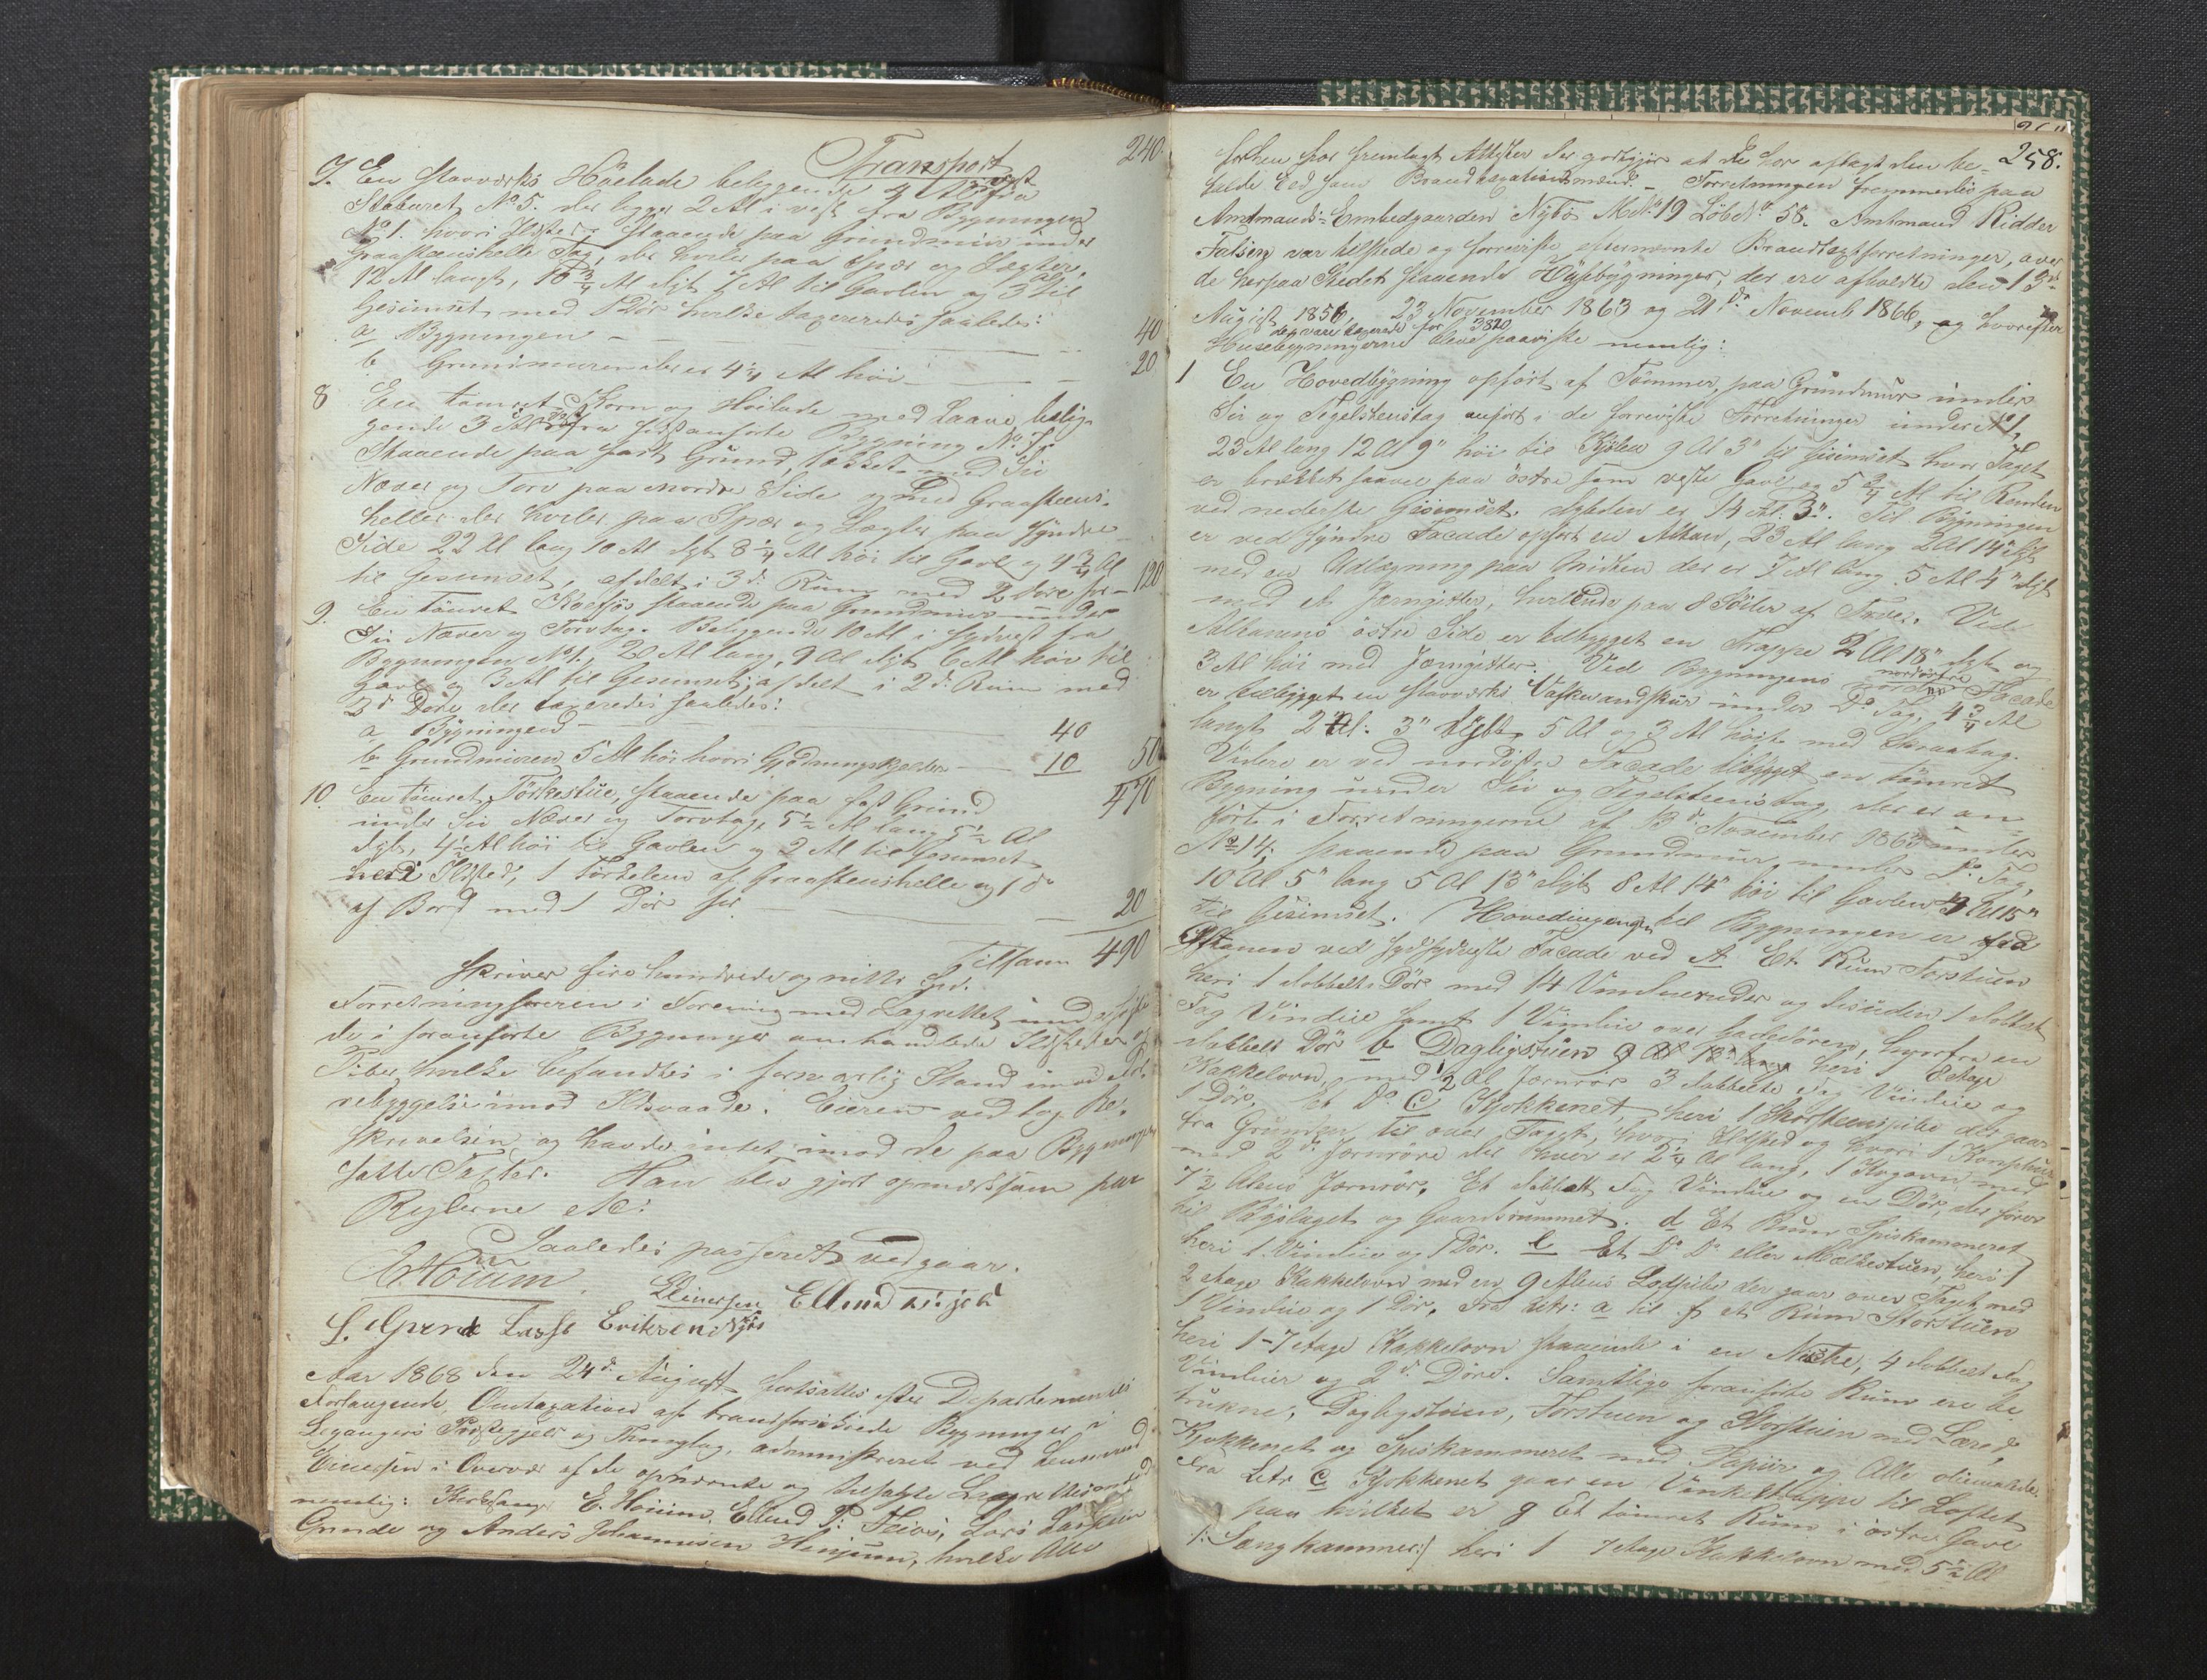 Transport 240
7. En Stavværks Höelade beliggende 4 Al vest fra
Stabüret No 5. der ligger 2 Al i vest fra Bygningen
No 1. hvori Ildsted Staaende paa Grundmür ünder
Graasteenshelle Tag, der hviler paa Spær og Lægter,
12 Al langt, 10 3/4 Al dybt 7 Al til Gavlen og 3 Al til
Gesimset med 1 Dör hvilke taxeredes saaledes:
a Bygningen 40
b. Grundmüren der er 4 1/4 Al höi 20
8 En tömret Korn og Höilade med Laave belig-
gende 3 Al fra sidstanförte Bygning No 7.
Staaende paa fast Gründ, tækket med Sü
Næver og Torv paa nordre Side og med Graasteens-
heller der hviler paa Spær og Lægter paa syndre
Side 22 Al lang 10 Al dyb 8 1/4 Al höi til Gavl og 4 3/4 Al
til Gesimset, afdelt i 3de Rüm med 2 Döre for 120
9. En tömret Koefjös staaende paa Grundmür ünder
Sü Næver og Torvtag. Beliggende 10 Al i sydvest fra
Bygningen No 1, 20 Al lang, 9 Al dyb 6 Al höi til
Gavl og 3 Al til Gesimset; afdelt i 2de Rüm med
3de Döre der taxeredes saaledes:
a Bygningen 40
b Grundmüren 5 Al höi hvori Gjödningskjelder 10 50
470
10. En tömret Törkestüe, staaende paa fast Gründ
ünder Sü Næver og Torvtag, 5 1/2 Al lang 5 1/2 Al
dyb, 4 1/2 Al höi til Gavlen og 2 Al til Gesimset
heri Ildsted, 1 Törkeleve af Graasteenshelle og 1 do
af Bord med 1 Dör for 20
Tilsam 490
skriver fire hundrede og nitti Spd.
Forretningsföreren i Forening med Lagrettet undersögte
de i foranförte Bygninger omhandlede Ildsteder og
Piber, hvilke befandtes i forsvarlig Stand imod
rebyggelse imod Ildsvaade. Eieren vedtog Be-
skrivelsen og havde intet imod de paa Bygningen
satte Taxter. Han blev gjort opmærksom paa
Reglerne etc:
Saaledes passeret vedgaar.
E Höium. LEinersen Ellend
S. Grinde Lasse Eriksen Njös
Aar 1868 den 24de August fortsattes efter Departementets
Forlangende, Omtaxation af brandforsikrede Bygninger i
Leganger Præstegjeld og Thinglag, administreret ved Lensmand
Einersen i Overvær af de opnævnte og tilstæde Lagrettesmænd
nemlig: Kirkesanger E. Höium, Ellend P: Feios, Lars Larsen
Grinde og Anders Johannesen Henjum, hvilke Alle
258.
forhen har fremlagt Attester der godtgjör at de har aflagt den be-
falede Eed som Brandtaxationsmænd. – Forretningen fremmedes paa
Amtmands-Embedgaarden Nybö Mat. No 19 Löbe No 58. Amtmand Ridder
Falsen var tilstede og foreviste efternævnte Brandtaxtforretninger, over
de herpaa Stedet staaende Hüsebygninger, der ere afholdte den 13de
August 1856, 23 November 1863 og 21de Novemb 1866, og hvorefter
der vare taxerede for 3820
Hüsebygningerne bleve paaviste nemlig:
1 En Hovedbygning opfört af Tömmer, paa Grundmür under
Sü og Tegelsteenstag anfört i de foreviste Forretninger ünder No 1,
23 Al lang 12 Al 9" höi til Rylen 9 Al 3" til Gesimset hvor Taget
er brækket saavel paa östre som vestre Gavl og 5 3/4 Al til Randen
ved nederste Gesimset. Dybden er 14 Al. 3". Til Bygningen
er ved syndre Facade opfört en Altan, 23 Al lang 2 Al 14" dyb
med en Udbygning paa midten der er 7 Al lang 5 Al 4" dyb
med et Jerngitter, hvilende paa 8 Söiler af Træe. Ved
Altanens östre Side er tilbygget en Trappe 2 Al 18" dyb og
3 Al höi med Jerngitter. Ved Bygningens nordöstre Facade
er tilbygget en Stavværks Vaskevandskür ünder Do Tag, 4 3/4 Al
langt 2 Al: 3" dybt, 5 Al og 3 Al höit med Skraatag.
Videre er ved nordöstre Facade tilbygget en tömret
Bygning under Sü og Tegelsteenstag, der er an-
fört i Forretningerne af 13de November 1863 ünder
No 14; staaende paa Grundmür, under Do Tag,
10 Al 5" lang 5 Al 13" dyb 8 Al 14" höi til Gavlen 3 Al 15"
til Gesimset. Hovedingangen til Bygningen er fra
Altanen ved sydsydvestre Facade ved A Et Rüm Forstüen
heri 1 dobbelt Dör med 14 Vinduerüder og desüden 1 dobbelt
Fag Vindüe samt 1 Vindüe over Gadedören, hvorfra en
dobbelt Dör b Dagligstüen heri 1 8 Etage
Kakkelovn, med 1/2 Al Jernrör 3 dobbelte Fag Vindüe og
1 Dör. Et Do C Kjökkenet, heri 1 Skorsteenspibe der gaar
fra Grunden til over Taget, hvori Ildsted og hvori 1 Komphür
med 2de Jernröre der hver er 2 1/4 Al lang, 1 Kogovn med
7 1/2 Alens Jernrör, Et dobbelt Fag Vindüe og en Dör, der förer
til Bislaget og Gaardsrummet. d Et Rüm Spiskammeret
heri 1. Vindüe og 1 Dör. e Et Do Do eller Melkestüen, heri 1
2 Etage Kakkelovn med en 9 Alens Lodpibe der gaar over Taget, med
1 Vindüe og 1 Dör. Fra Litr: a til f et Rüm Storstüen
heri 1-7 Etage Kakkelovn staaende i en Niche, 4 dobbelt Fag
Vindüer og 2de Döre. Samtlige foranförte Rüm ere be-
trukne; Dagligstüen, Forstüen og Storstüen med Læred,
Kjökkenet og Spiskammeret med Papiir og Alle oliemalede.
Fra Litr C Kjökkenet gaar en Vinkeltrappe til Loftet
paa hvilket er g Et tömret Rüm i östre Gavl
/: Sengkammer :/ heri 1 7 Etage Kakkelovn med 5 1/2 Al